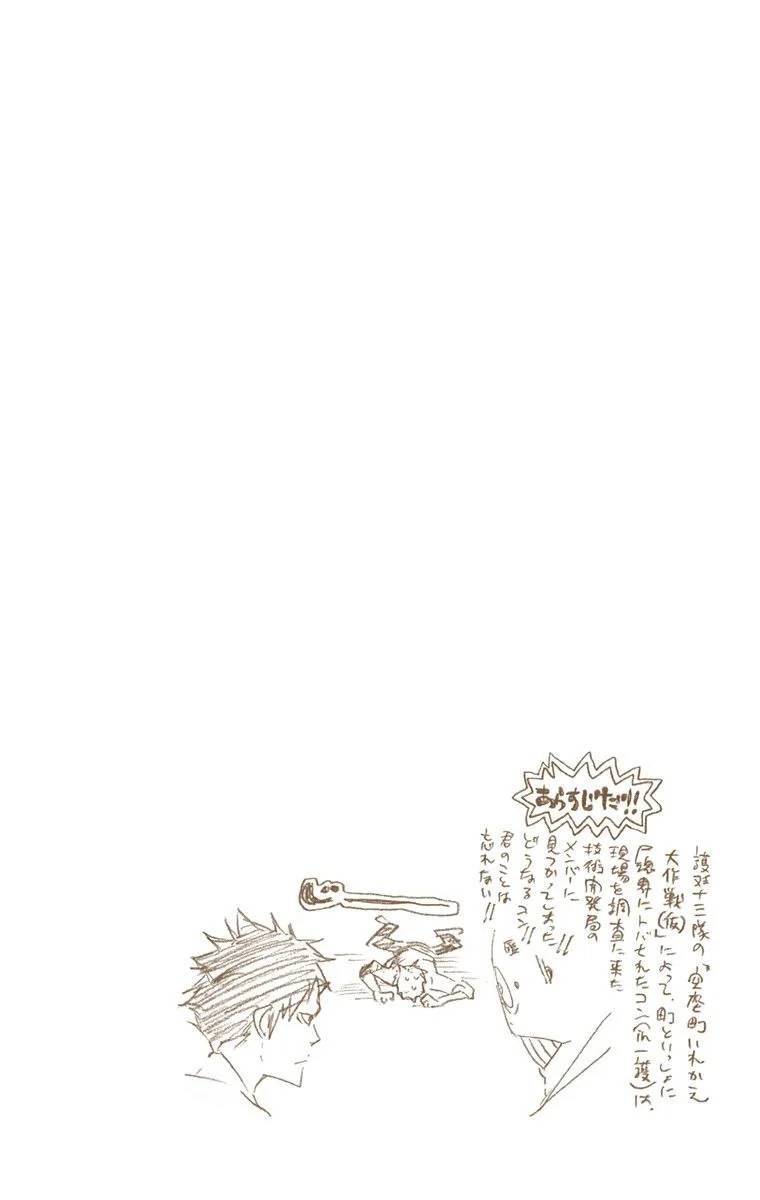 あらすじだッ!!
護廷十三隊の"空座町いれかえ
大作戦(仮)"によって、町といっしょに
尸魂界にトバされたコン(in一護)は、
現場を調査に来た
技術開発局の
メンバーに
見つかってしまった!!
どうなるコン!!
君のことは
忘れない!!